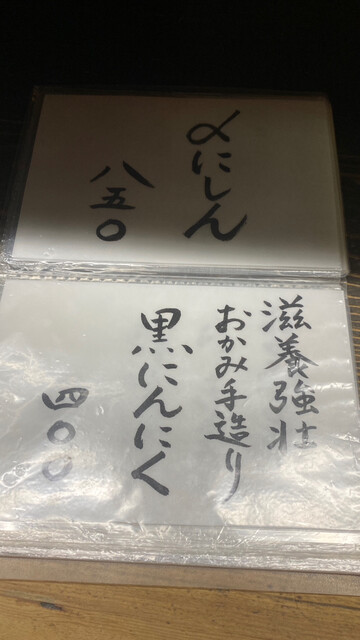 〆にしん
八五〇
滋養強壮
おかみ手造り
黒にんにく
四〇〇